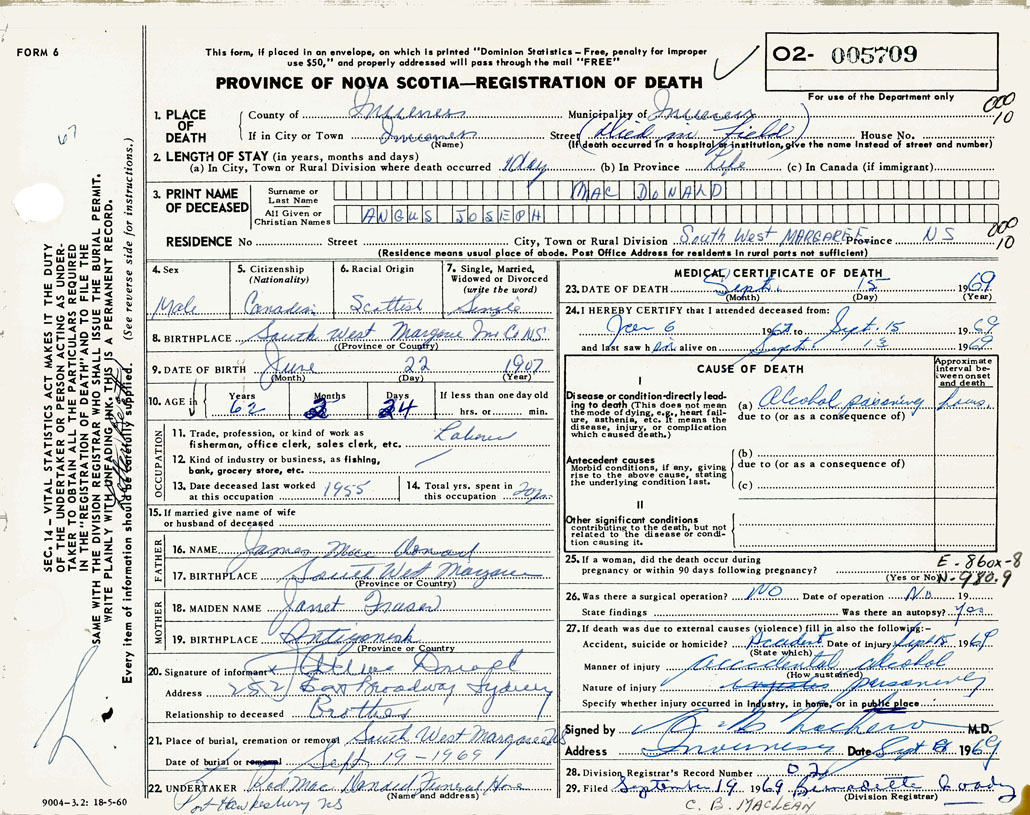 FORM 6
This form, if placed in an envelope, on which is printed "Dominion Statistics – Free, penalty for improper
use $50," and properly addressed will pass through the mail "FREE"
O2- 005709
PROVINCE OF NOVA SCOTIA—REGISTRATION OF DEATH
For use of the Department only
000
10
67
SEC. 14 – VITAL STATISTICS ACT MAKES IT THE DUTY
OF THE UNDERTAKER OR PERSON ACTING AS UNDER-
TAKER TO OBTAIN ALL THE PARTICULARS REQUIRED
IN THE "REGISTRATION OF DEATH" AND TO FILE THE
SAME WITH THE DIVISION REGISTRAR WHO SHALL ISSUE THE BURIAL PERMIT.
WRITE PLAINLY WITH UNFADING INK. THIS IS A PERMANENT RECORD.
Every item of information should be carefully supplied. (See reverse side for instructions.)
1. PLACE OF DEATH
County of Inverness Municipality of Inverness
If in City or Town Inverness Street (Died in Field) House No.
(Name) (If death occurred in a hospital or institution, give the name instead of street and number)
2. LENGTH OF STAY (in years, months and days)
(a) In City, Town or Rural Division where death occurred 1 day (b) In Province Life (c) In Canada (if immigrant)
3. PRINT NAME OF DECEASED
Surname or Last Name MAC DONALD
All Given or Christian Names ANGUS JOSEPH
RESIDENCE No Street City, Town or Rural Division South West MARGAREE Province NS
000
10
(Residence means usual place of abode. Post Office Address for residents in rural parts not sufficient)
4. Sex
Male
5. Citizenship (Nationality)
Canadian
6. Racial Origin
Scottish
7. Single, Married, Widowed or Divorced (write the word)
Single
8. BIRTHPLACE South West Margaree Inv Co NS
(Province or Country)
9. DATE OF BIRTH June 22 1907
(Month) (Day) (Year)
10. AGE in Years 62 Months 2 Days 24 If less than one day old hrs. or min.
OCCUPATION
11. Trade, profession, or kind of work as
fisherman, office clerk, sales clerk, etc. Laborer
12. Kind of industry or business, as fishing,
bank, grocery store, etc.
13. Date deceased last worked
at this occupation 1955
14. Total yrs. spent in
this occupation 20 yrs.
15. If married give name of wife
or husband of deceased
FATHER
16. NAME James Mac Donald
17. BIRTHPLACE South West Margaree
(Province or Country)
MOTHER
18. MAIDEN NAME Janet Fraser
19. BIRTHPLACE Antigonish
(Province or Country)
20. Signature of informant
Address 252 East Broadway Sydney
Relationship to deceased Brother
21. Place of burial, cremation or removal South West Margaree NS
Date of burial or removal Sept. 19 - 1969
22. UNDERTAKER Rod Mac Donald Funeral Home
(Name and address)
Port Hawkesbury NS
9004-3.2: 18-5-60
MEDICAL CERTIFICATE OF DEATH
23. DATE OF DEATH Sept. 15 1969
(Month) (Day) (Year)
24. I HEREBY CERTIFY that I attended deceased from:
Jan 6 1967 to Sept. 15 1969
and last saw him alive on Sept. 13 1969
CAUSE OF DEATH
Approximate interval between onset and death
I
Disease or condition directly leading to death (This does not mean the mode of dying, e.g., heart failure, asthenia, etc. It means the disease, injury, or complication which caused death.)
(a) Alcohol poisoning hours.
due to (or as a consequence of)
Antecedent causes
Morbid conditions, if any, giving rise to the above cause, stating the underlying condition last.
(b)
due to (or as a consequence of)
(c)
II
Other significant conditions
contributing to the death, but not related to the disease or condition causing it.
25. If a woman, did the death occur during
pregnancy or within 90 days following pregnancy?
(Yes or No)
E-860x-8
N-980.9
26. Was there a surgical operation? NO Date of operation No 19
State findings Was there an autopsy? Yes
27. If death was due to external causes (violence) fill in also the following:–
Accident, suicide or homicide? Accident Date of injury Sept 15 1969
(State which)
Manner of injury accidental alcohol
(How sustained)
Nature of injury poisoning
Specify whether injury occurred in industry, in home, or in public place
Signed by M.D.
Address Inverness Date Sept 1969
28. Division Registrar's Record Number 02
29. Filed September 19 1969 Bernadette
(Division Registrar)
C. B. MACLEAN